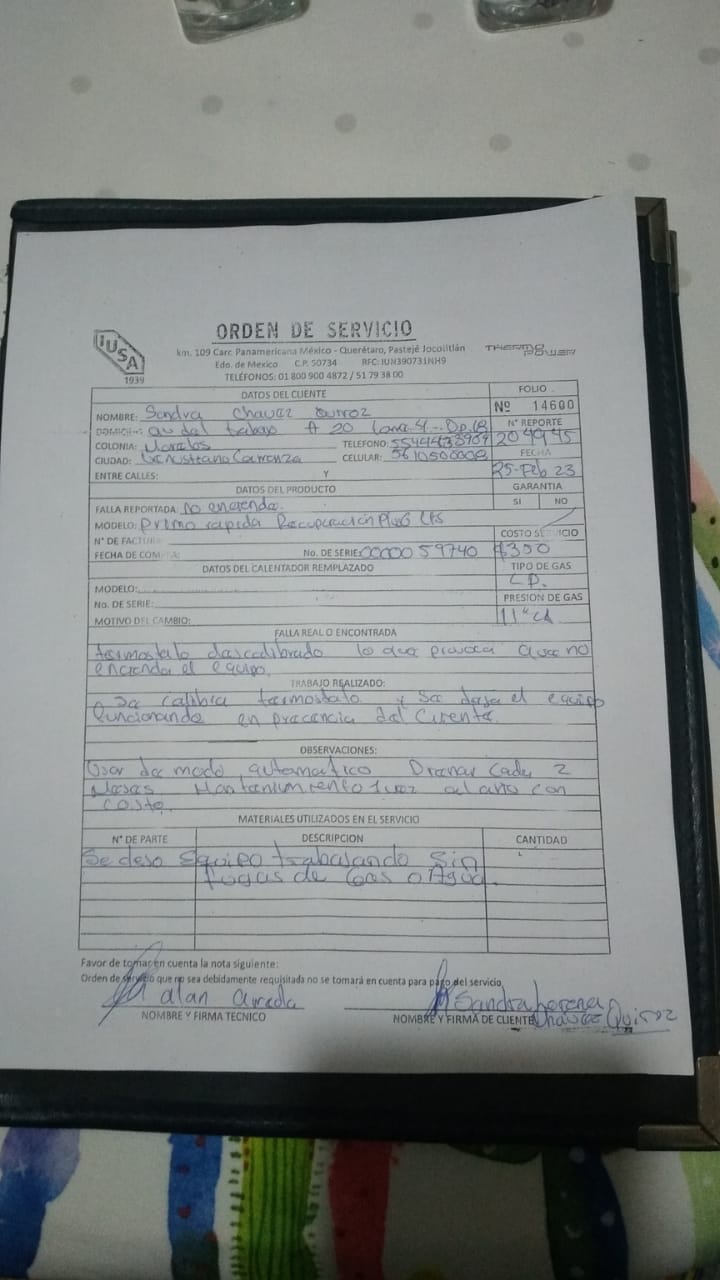 ORDEN DE SERVICIO
IUSA
1939
km. 109 Carr. Panamericana México - Querétaro, Pastejé Jocotitlán
THERMO POWER
Edo. de Mexico C.P. 50734 RFC: IUN390731NH9
TELÉFONOS: 01 800 900 4872 / 51 79 38 00
DATOS DEL CLIENTE
FOLIO
Nº 14600
NOMBRE: Sandra Chavez Quiroz
N° REPORTE
204995
av del trabajo # 20
COLONIA: Morelos TELEFONO:
CIUDAD: Venustiano Carranza CELULAR: 5610500008
FECHA
25-Feb 23
ENTRE CALLES: Y
DATOS DEL PRODUCTO
GARANTIA
SI NO
FALLA REPORTADA: No enciende.
MODELO: Primo rapida Recuperación Plus
COSTO SERVICIO
$350
N° DE FACTURA
FECHA DE COMPRA: No. DE SERIE: 0000059740
DATOS DEL CALENTADOR REMPLAZADO
TIPO DE GAS
L.P.
MODELO:
No. DE SERIE:
PRESION DE GAS
11" CA
MOTIVO DEL CAMBIO:
FALLA REAL O ENCONTRADA
termostato descalibrado lo que provoca que no
encienda el equipo.
TRABAJO REALIZADO:
Se calibra termostato y se deja el equipo
funcionando en precencia del Cliente.
OBSERVACIONES:
Usar de modo automatico Drenar Cada 2
Meses Mantenimiento 1 vez al año con
costo.
MATERIALES UTILIZADOS EN EL SERVICIO
N° DE PARTE DESCRIPCION CANTIDAD
Se dejo Equipo trabajando Sin
fugas de Gas o Agua.
Favor de tomar en cuenta la nota siguiente:
Orden de servicio que no sea debidamente requisitada no se tomará en cuenta para pago del servicio
alan
NOMBRE Y FIRMA TECNICO
Sandra Lorena
Chavez Quiroz
NOMBRE Y FIRMA DE CLIENTE